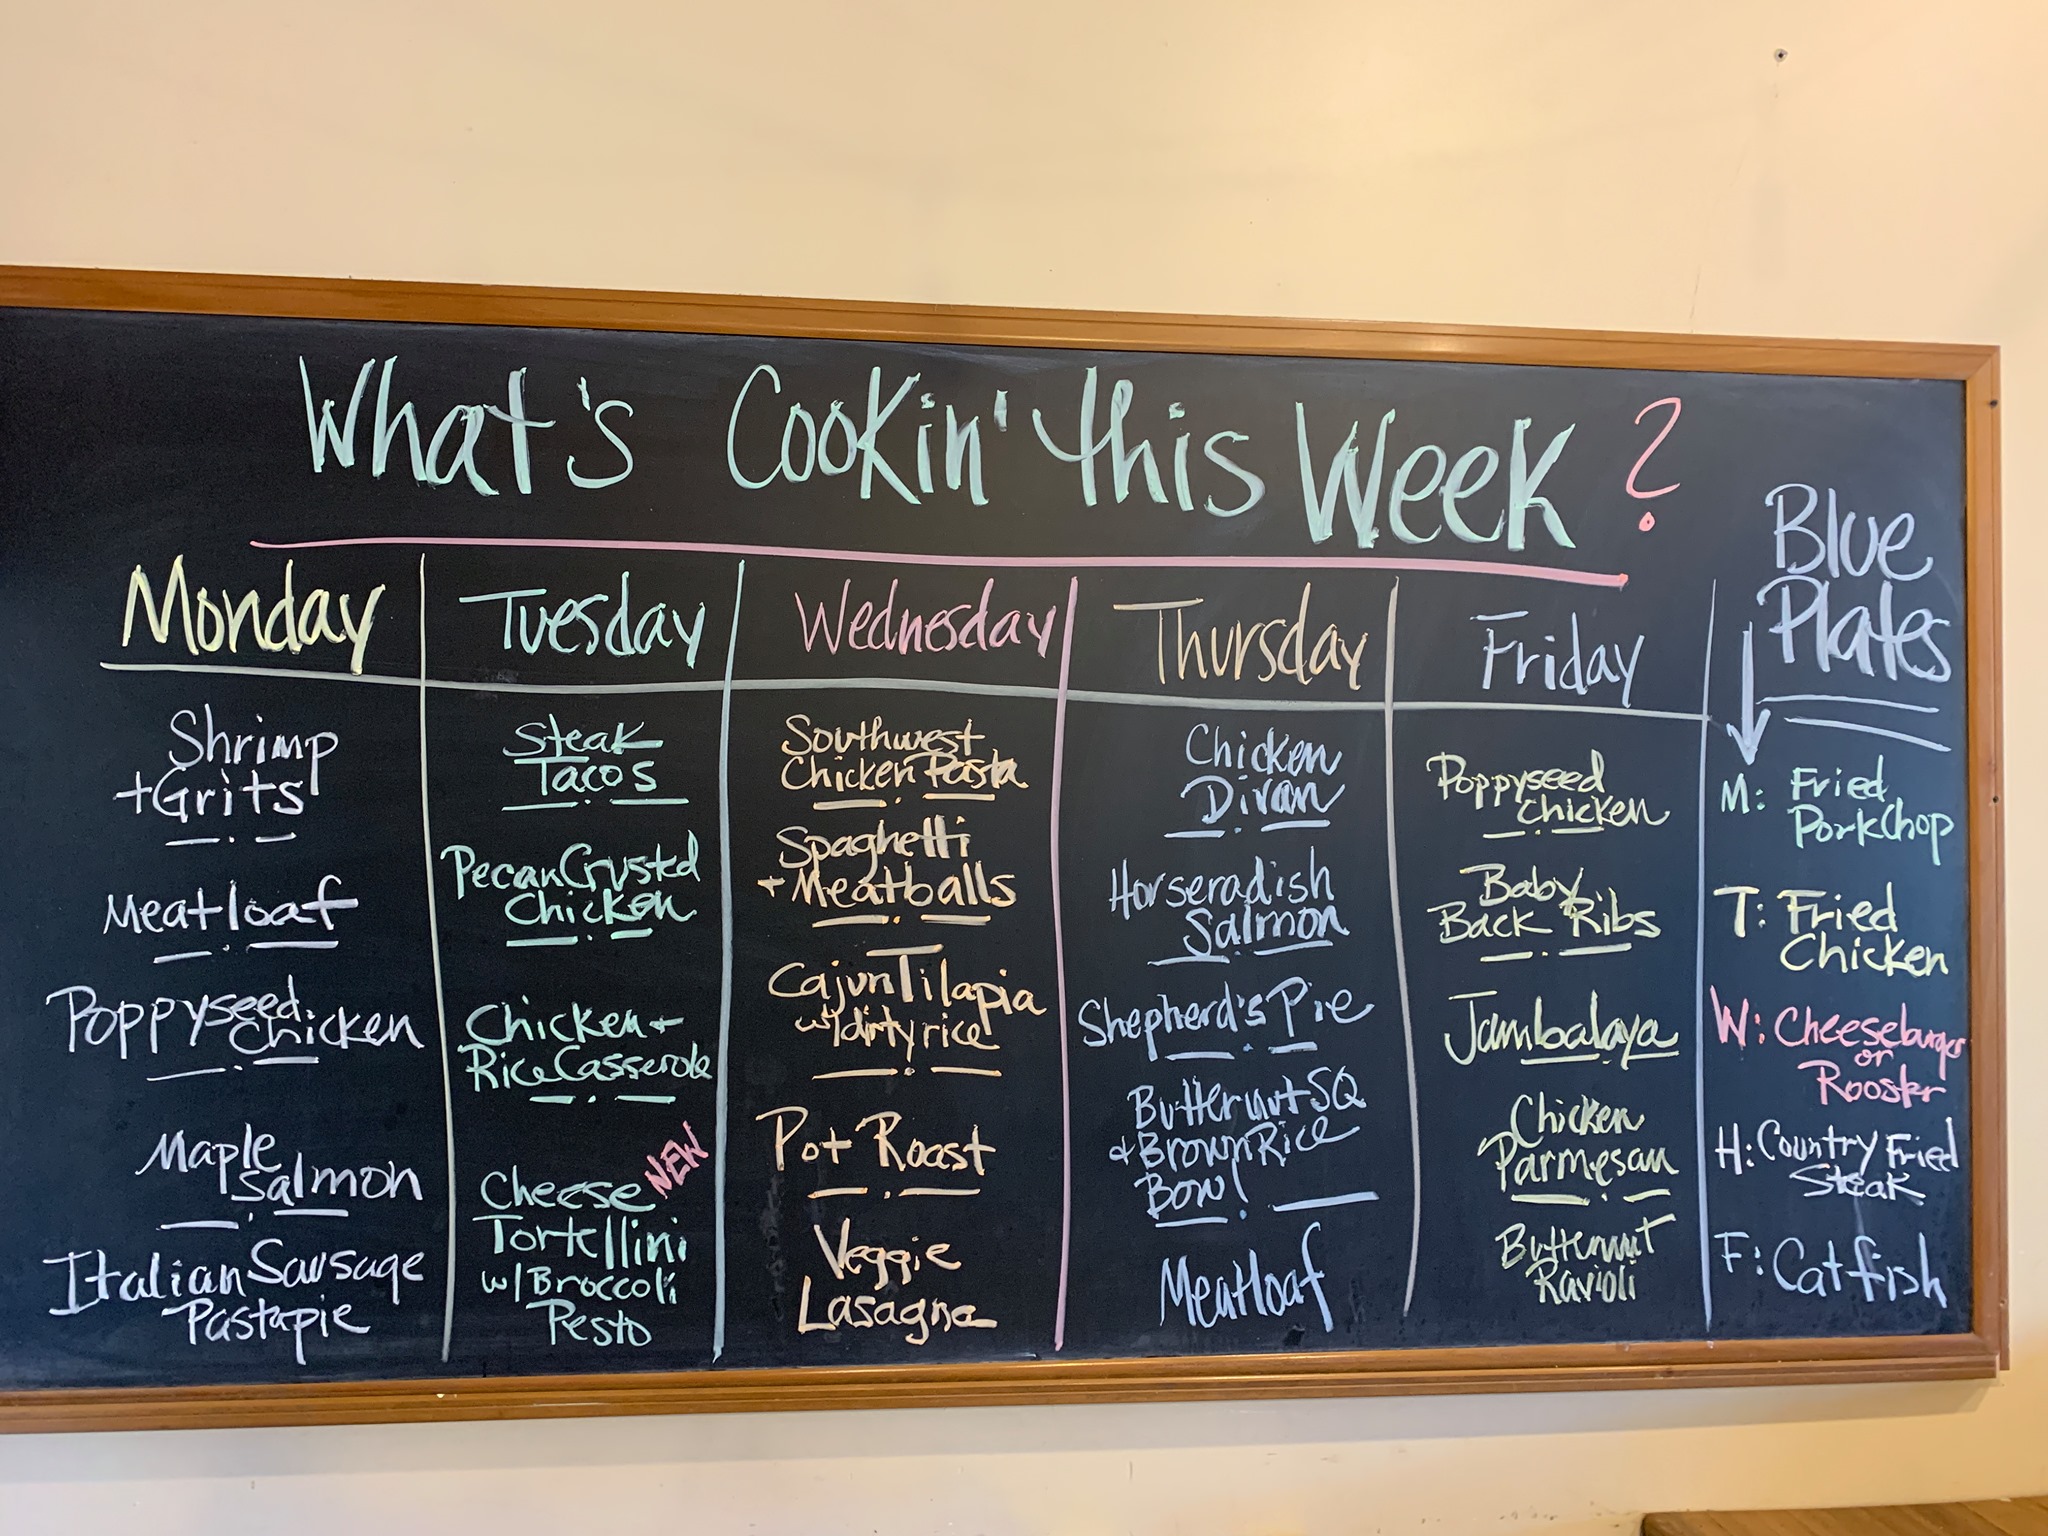 What's Cookin' this Week?
Monday
Shrimp
+ Grits
Meatloaf
Poppyseed
Chicken
Maple
Salmon
Italian Sausage
Pasta pie
Tuesday
Steak
Tacos
Pecan Crusted
Chicken
Chicken +
Rice Casserole
NEW
Cheese
Tortellini
w/ Broccoli
Pesto
Wednesday
Southwest
Chicken Pasta
Spaghetti
+ Meatballs
Cajun Tilapia
w/ dirty rice
Pot Roast
Veggie
Lasagna
Thursday
Chicken
Divan
Horseradish
Salmon
Shepherd's Pie
Butternut SQ
+ Brown Rice
Bowl
Meatloaf
Friday
Poppyseed
Chicken
Baby
Back Ribs
Jambalaya
Chicken
Parmesan
Butternut
Ravioli
Blue
Plates
M: Fried
Pork Chop
T: Fried
Chicken
W: Cheeseburger
or
Rooster
H: Country Fried
Steak
F: Catfish